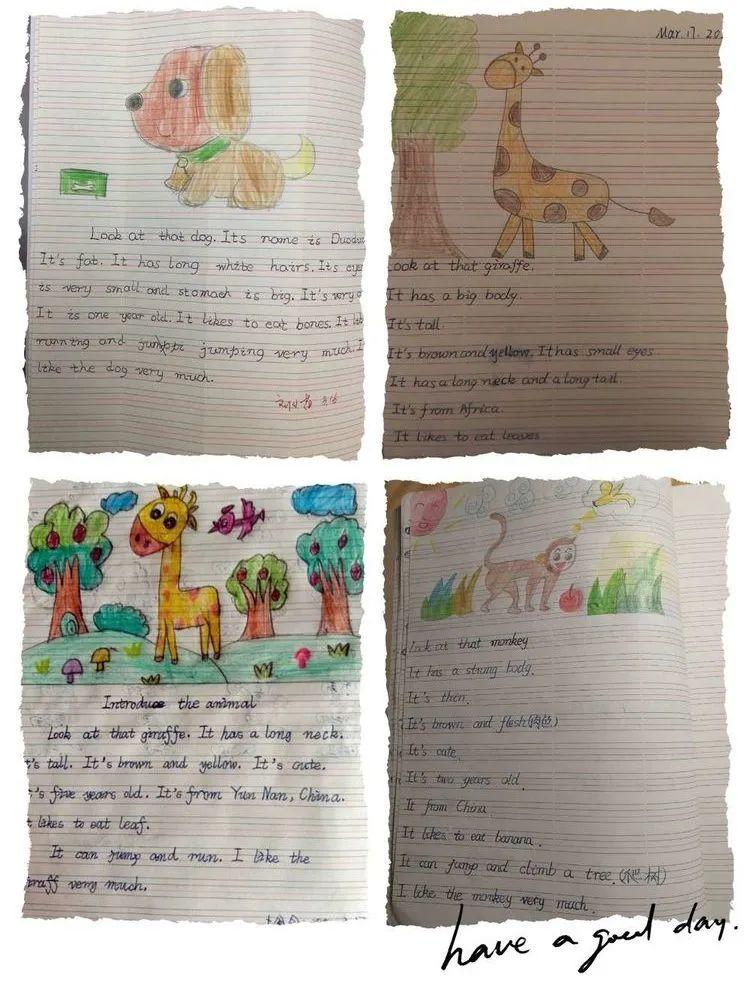 Look at that dog. Its name is
It's fat. It has long white hairs. Its eye
is very small and stomach is big. It's very
It is one year old. It likes to eat bones. It
running and jumping very much. I
like the dog very much.
Mar. 17. 20
ook at that giraffe.
It has a big body.
It's tall.
It's brown and yellow. It has small eyes.
It has a long neck and a long tail.
It's from Africa.
It likes to eat leaves
Introduce the animal
Look at that giraffe. It has a long neck.
t's tall. It's brown and yellow. It's cute.
t's five years old. It's from Yun Nan, China.
t likes to eat leaf.
It can jump and run. I like the
raff very much.
Look at that monkey
It has a strong body.
It's thin.
It's brown and flesh(肉色)
It's cute.
It's two years old.
It from China.
It likes to eat banana.
It can jump and climb a tree.(爬树)
I like the monkey very much.
have a good day.